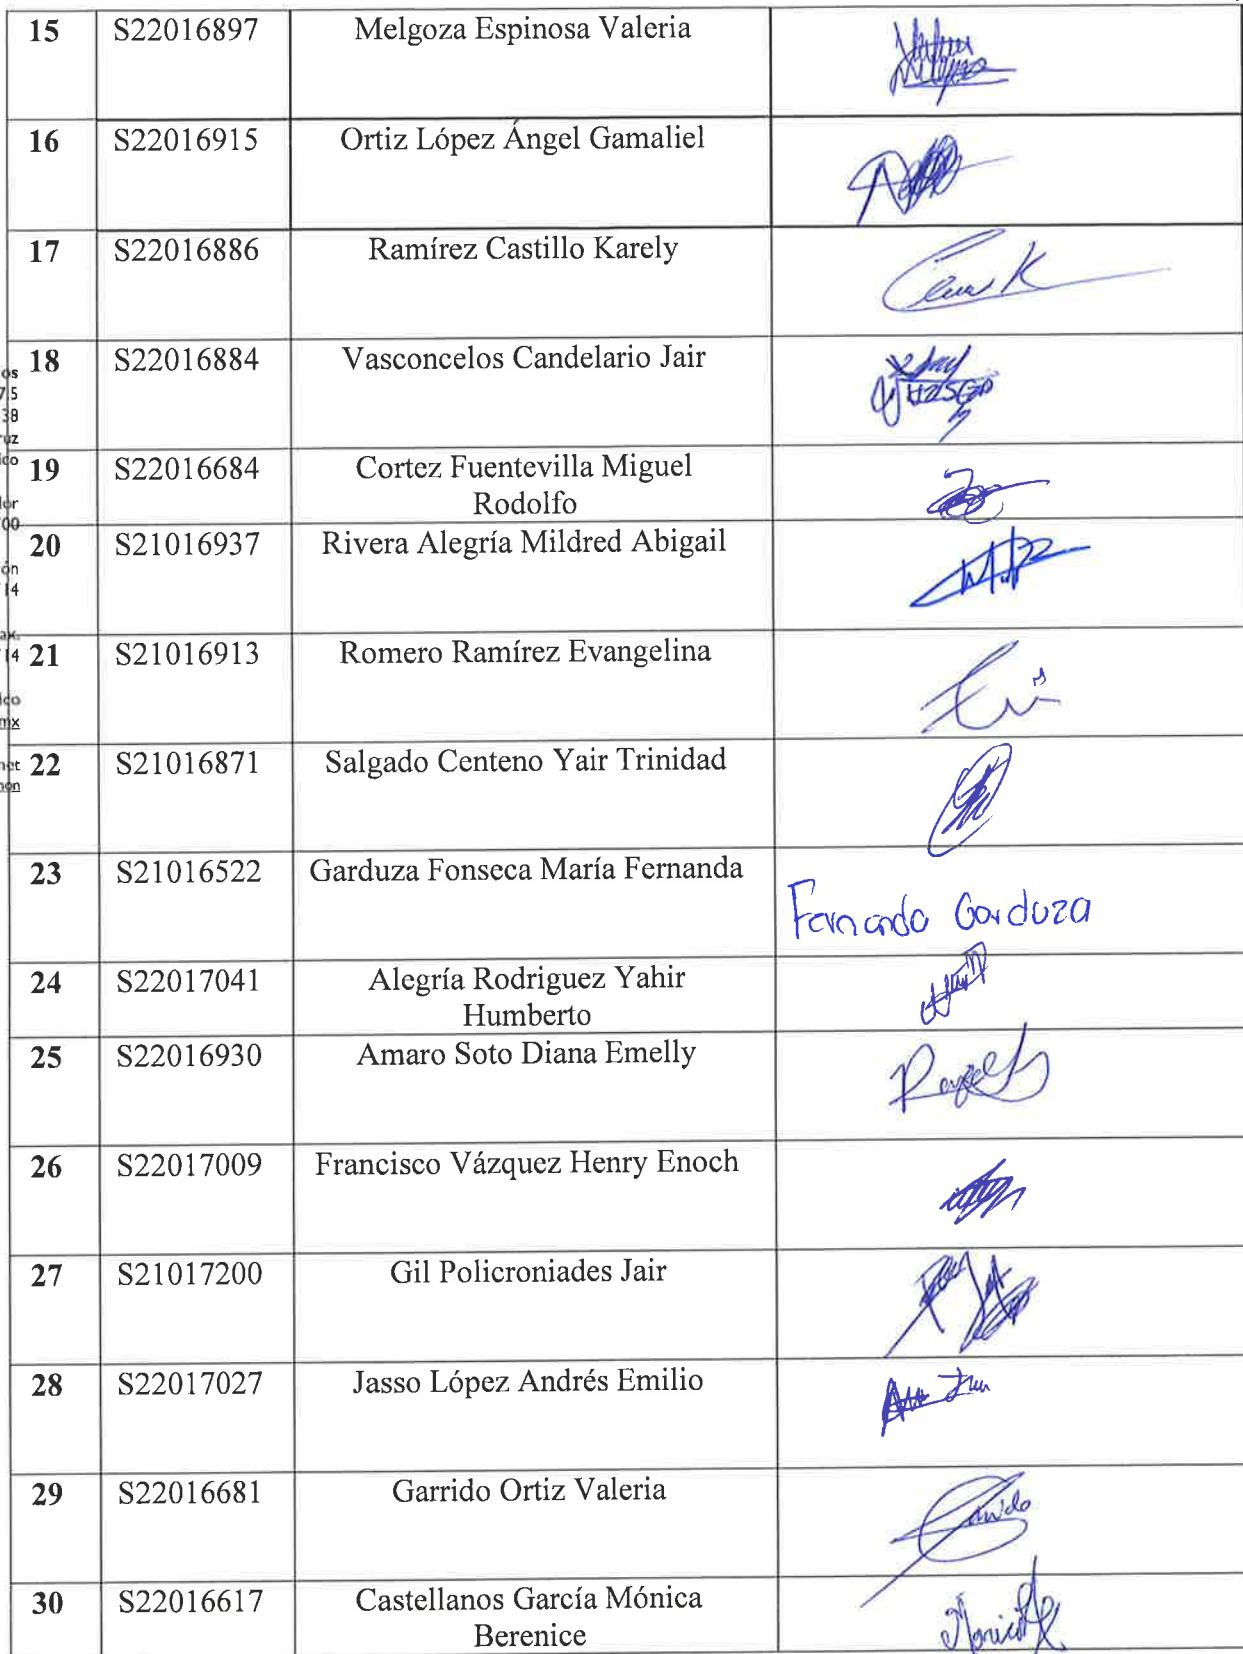 15 S22016897 Melgoza Espinosa Valeria
16 S22016915 Ortiz López Ángel Gamaliel
17 S22016886 Ramírez Castillo Karely
os
18 S22016884 Vasconcelos Candelario Jair
7.5
38
ruz
ico
19 S22016684 Cortez Fuentevilla Miguel
Rodolfo
lor
00
20 S21016937 Rivera Alegría Mildred Abigail
ón
14
ax.
14
21 S21016913 Romero Ramírez Evangelina
ico
mx
net
22 S21016871 Salgado Centeno Yair Trinidad
non
23 S21016522 Garduza Fonseca María Fernanda
Fernanda Garduza
24 S22017041 Alegría Rodriguez Yahir
Humberto
25 S22016930 Amaro Soto Diana Emelly
26 S22017009 Francisco Vázquez Henry Enoch
27 S21017200 Gil Policroniades Jair
28 S22017027 Jasso López Andrés Emilio
29 S22016681 Garrido Ortiz Valeria
30 S22016617 Castellanos García Mónica
Berenice